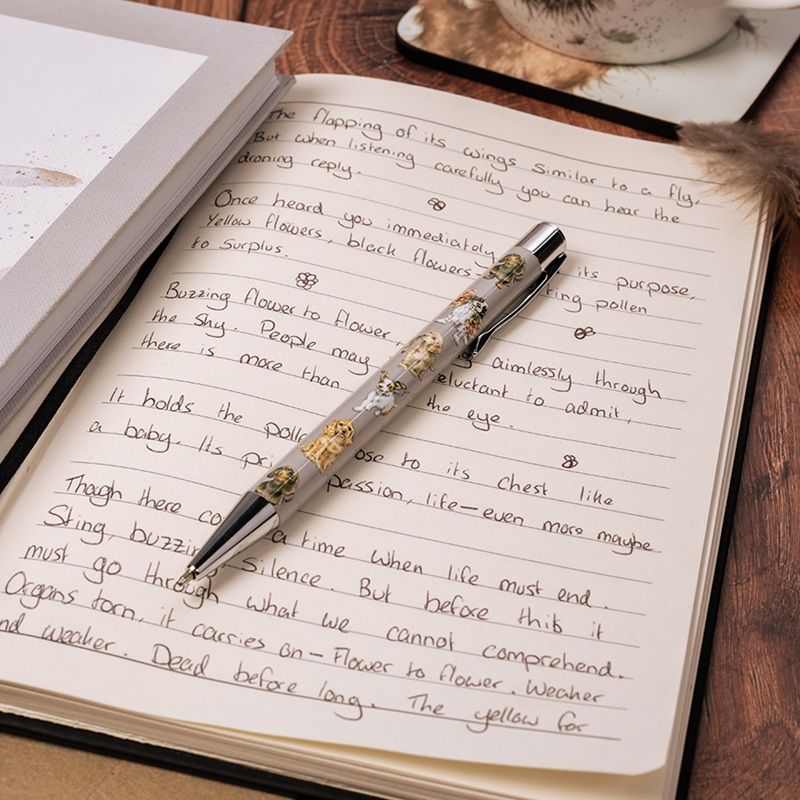 The flapping of its wings similar to a fly,
But when listening carefully you can hear the
droning reply.
Once heard you immediately its purpose,
Yellow flowers, black flowers- ting pollen
to surplus.
Buzzing flower to flower, aimlessly through
the sky. People may eluctant to admit,
there is more than the eye.
It holds the polle ose to its chest like
a baby. Its pri passion, life-even more maybe.
Though there co a time when life must end.
Sting, buzzin Silence. But before this it
must go through what we cannot comprehend.
Organs torn, it carries on - Flower to flower. Weaker
nd weaker. Dead before long. The yellow for